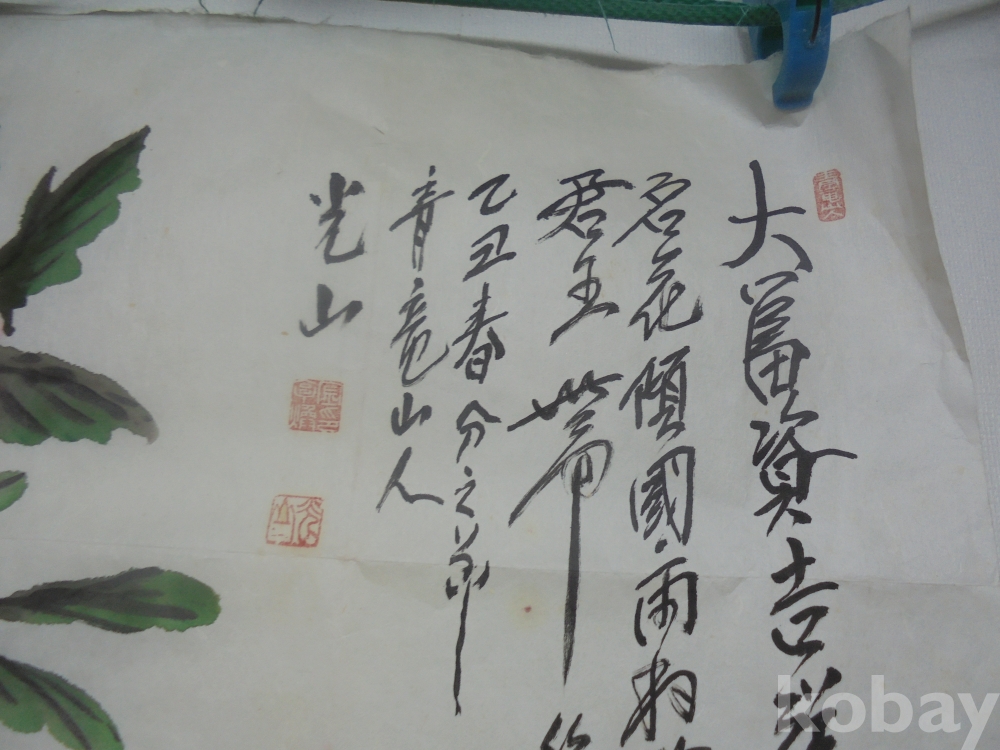 大富貴吉祥
名花傾國兩相
君王帶
乙丑春分之節
青竜山人
光山
kobay